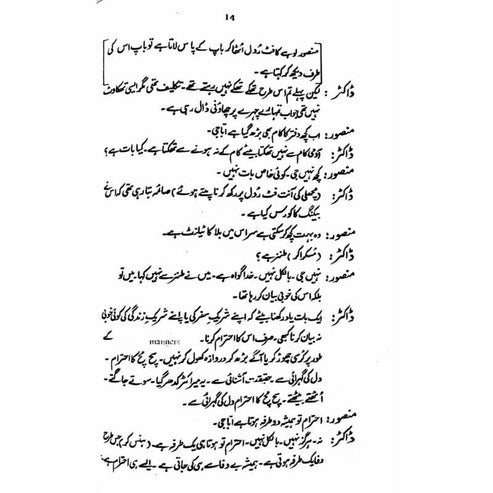 14
منصور لوہے کا فٹ رُول اُٹھا کر باپ کے پاس لاتا ہے تو باپ اس کی
طرف دیکھ کر کہتا ہے۔
ڈاکٹر: لیکن پہلے تم اس طرح تھکے تھکے نہیں رہتے تھے۔ تکلیف تھی مگر ایسی تھکاوٹ
نہیں تھی جو اب تمہارے چہرے پر چھائی ڈال رہی ہے۔
منصور: اب کچھ دفتر کا کام بھی بڑھ گیا ہے اباجی۔
ڈاکٹر: آدمی کام سے نہیں تھکتا بیٹے کام کے نہ ہونے سے تھکتا ہے۔ کیا بات ہے؟
منصور: کچھ نہیں جی۔ کوئی خاص بات نہیں۔
ڈاکٹر: (مچھلی کی آنت فٹ رُول پر رکھ کر ناپتے ہوئے) صائمہ بتا رہی تھی کہ اس نے
بیکنگ کا کورس کیا ہے۔
منصور: وہ بہت کچھ کر سکتی ہے سر اس میں بلا کا ٹیلنٹ ہے۔
ڈاکٹر: (مسکرا کر) طنز ہے؟
منصور: نہیں جی۔ بالکل نہیں۔ خدا گواہ ہے۔ میں نے طنز سے نہیں کہا۔ میں تو
بلکہ اس کی خوبی بیان کر رہا تھا۔
ڈاکٹر: ایک بات یاد رکھنا بیٹے کہ اپنے شریکِ سفر کی یا اپنے شریکِ زندگی کی کوئی خوبی
نہ بیان کرنا کبھی۔ صرف اس کا احترام کرنا۔ manners کے
طور پر کرسی چھوڑ کر یا آگے بڑھ کر دروازہ کھول کر نہیں۔ سچ مچ کا احترام۔
دل کی گہرائی سے۔ حقیقت آشنائی سے۔ یہ میرا کدھر گیا۔ سوتے جاگتے۔
اُٹھتے بیٹھتے۔ سچ مچ کا احترام دل کی گہرائی سے۔
منصور: احترام تو ہمیشہ دو طرفہ ہوتا ہے اباجی۔
ڈاکٹر: نہ۔ ہرگز نہیں۔ بالکل نہیں۔ احترام تو ہوتا ہی یک طرفہ ہے۔ (ہنس کر) جس طرح
وفا یک طرفہ ہوتی ہے۔ ہمیشہ بے وفا سے ہی کی جاتی ہے۔ ایسے ہی احترام ہے۔